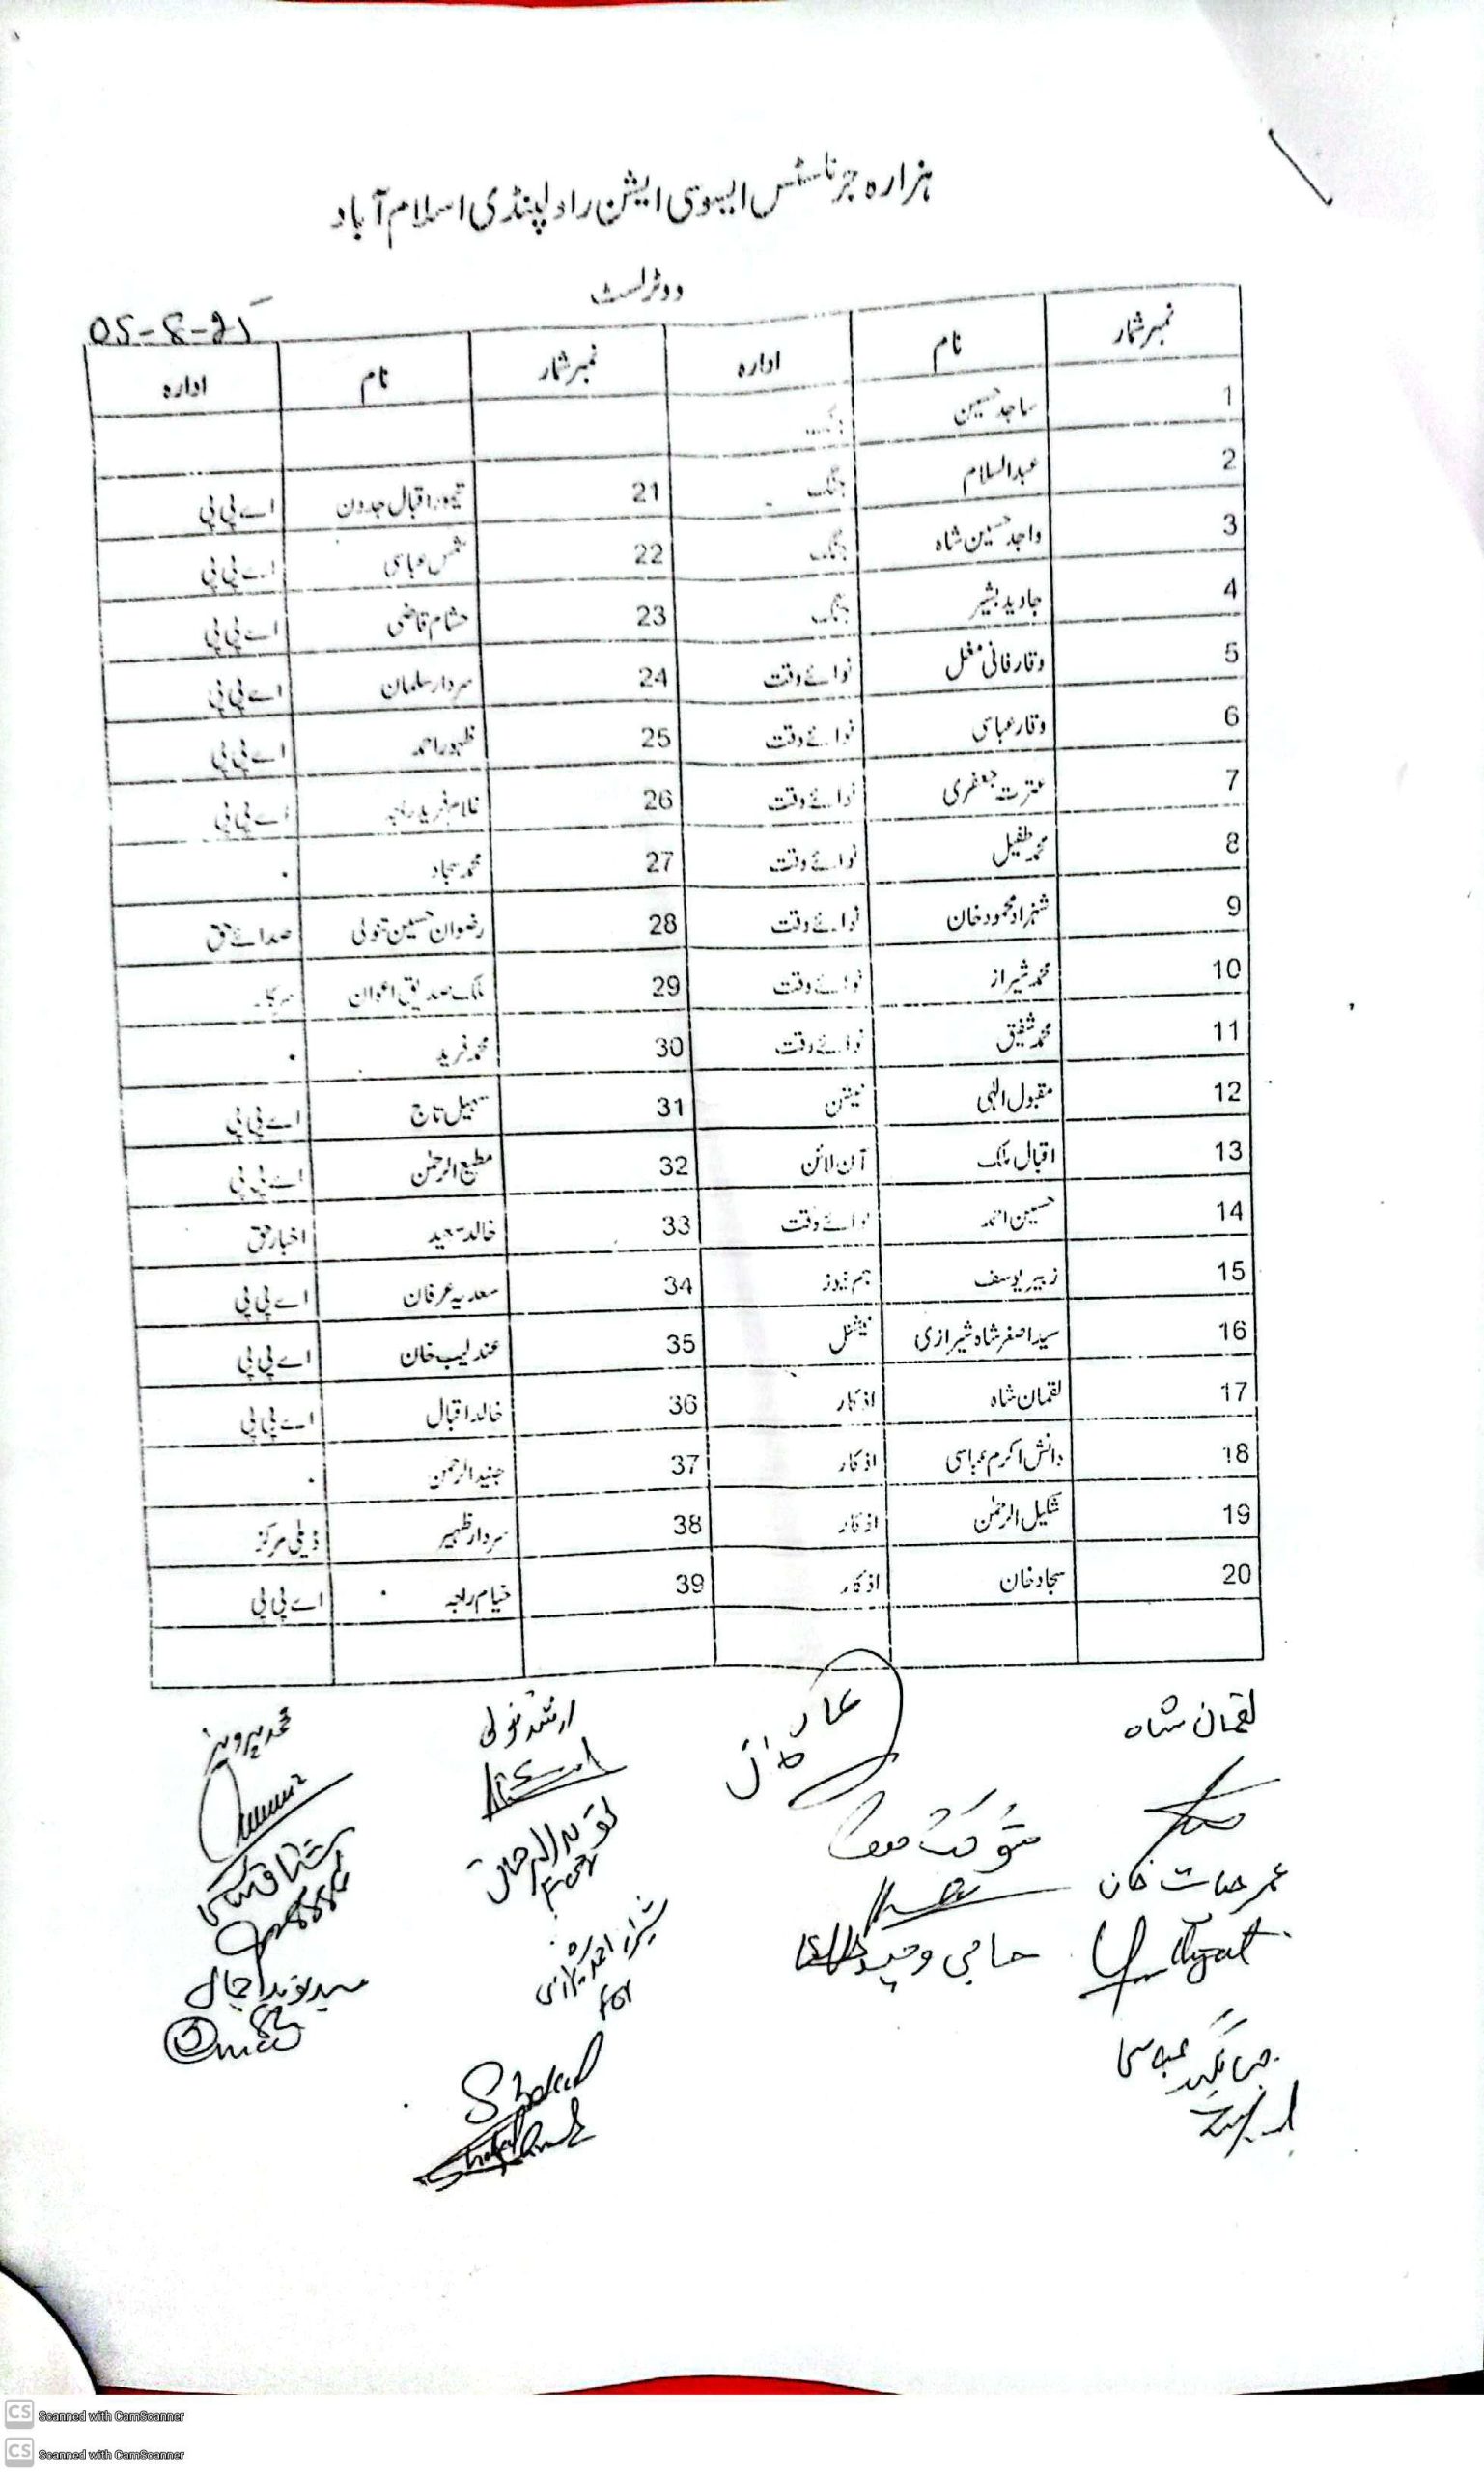 ہزارہ جرنلسٹس ایسوسی ایشن راولپنڈی اسلام آباد
ووٹر لسٹ
05-8-25
نمبر شمار نام ادارہ نمبر شمار نام ادارہ
1 ساجد حسین جنگ
2 عبدالسلام جنگ 21 تیمور اقبال جدون اے پی پی
3 واجد حسین شاہ جنگ 22 شمس عباسی اے پی پی
4 جاوید بشیر جنگ 23 حشام قاضی اے پی پی
5 وقار فانی مغل نوائے وقت 24 سردار سلمان اے پی پی
6 وقار عباسی نوائے وقت 25 ظہور احمد اے پی پی
7 عترت جعفری نوائے وقت 26 غلام فرید راجہ اے پی پی
8 محمد طفیل نوائے وقت 27 محمد سجاد
9 شہزاد محمود خان نوائے وقت 28 رضوان حسین تنولی صدائے حق
10 محمد شیراز نوائے وقت 29 ملک صدیق اعوان
11 محمد شفیق نوائے وقت 30 محمد فرید
12 مقبول الہی نیشن 31 سہیل تاج اے پی پی
13 اقبال ملک آن لائن 32 مطیع الرحمن اے پی پی
14 حسین احمد نوائے وقت 33 خالد سعید اخبار حق
15 زبیر یوسف ہم نیوز 34 سعدیہ عرفان اے پی پی
16 سید اصغر شاہ شیرازی نیشنل 35 عندلیب خان اے پی پی
17 لقمان شاہ اذکار 36 خالد اقبال اے پی پی
18 دانش اکرم عباسی اذکار 37 جنید الرحمن
19 شکیل الرحمن اذکار 38 سردار ظہیر ڈیلی مرکز
20 سجاد خان اذکار 39 خیام راجہ اے پی پی
لقمان شاہ ارشد تنولی محمد پرویز
شوکت
عمر حیات خان
حاجی وحید
for
جہانگیر عباسی
Shakeel
CS Scanned with CamScanner
CS Scanned with CamScanner